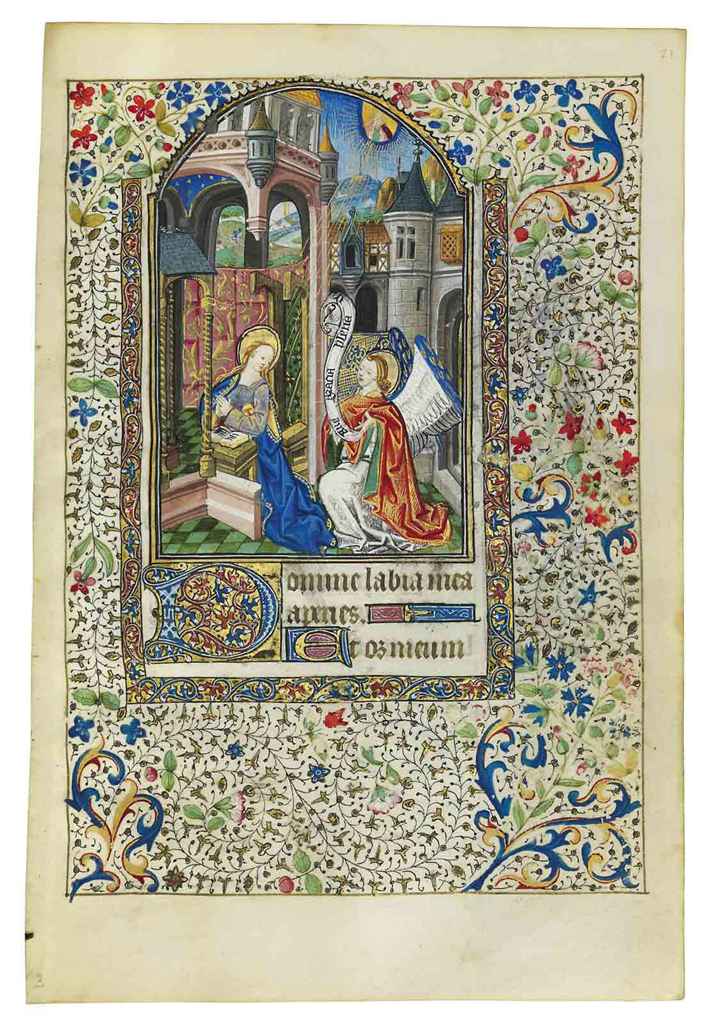 21
Aue gracia plena
Domine labia mea
aperies.
Et os meum